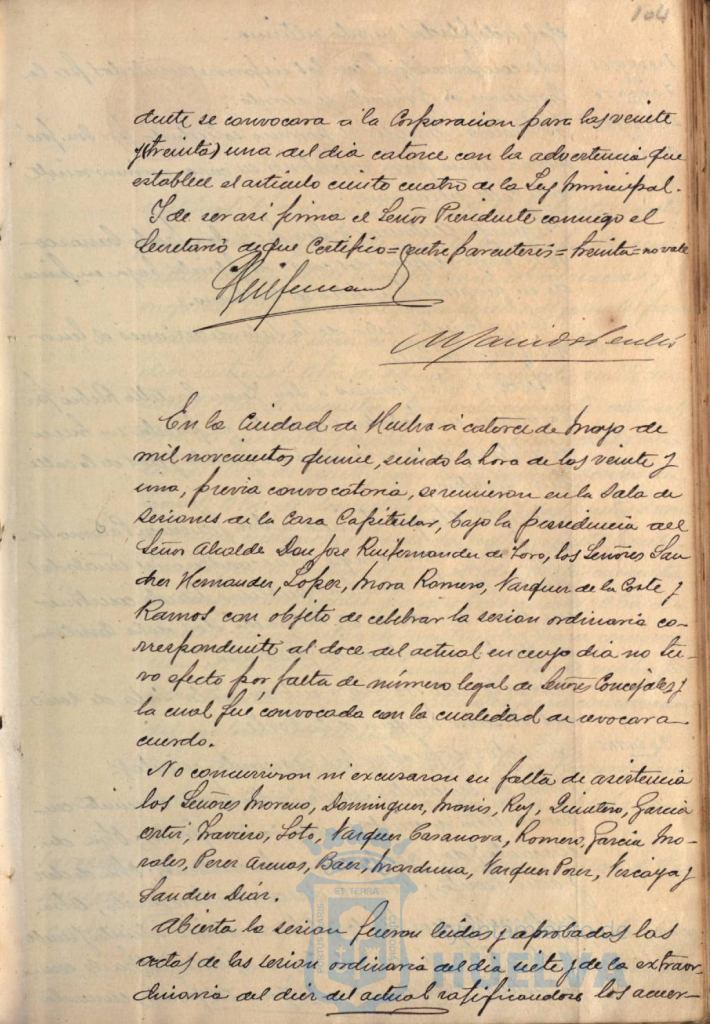 104
diente se convocara á la Corporacion para las veinte
y (treinta) una del dia catorce con la advertencia que
establece el articulo ciento cuatro de la Ley Municipal.
Y de ser asi firma el Señor Presidente conmigo el
Secretario de que Certifico = entre parentesis = treinta = no vale
En la Ciudad de Huelva á catorce de Mayo de
mil novecientos quince, siendo la hora de las veinte y
una, previa convocatoria, se reunieron en la Sala de
Sesiones de la Casa Capitular, bajo la presidencia del
Señor Alcalde Don José Ruifernandez de Toro, los Señores San
chez Hernandez, Lopez, Mora Romero, Vazquez de la Corte y
Ramos con objeto de celebrar la sesion ordinaria co-
rrespondiente al doce del actual en cuyo dia no tu-
vo efecto por falta de número legal de Señores Concejales y
la cual fué convocada con la cualidad de revocar a-
cuerdo.
No concurrieron ni excusaron su falta de asistencia
los Señores Moreno, Dominguez, Monis, Rey, Quintero, Garcia
Ortiz, Travieso, Soto, Vazquez Casanova, Romero, Garcia Mo-
rales, Perez Arenas, Baez, Marchena, Vazquez Perez, Vizcaya y
Sanchez Diaz.
Abierta la sesion fueron leidas y aprobadas las
actas de las sesion ordinaria del dia siete y de la extraor-
dinaria del diez del actual ratificandose los acuer-
ET TERRA
HUELVA